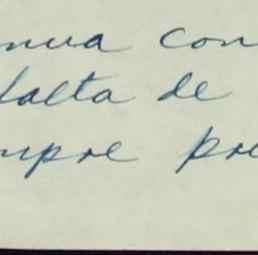 nua con
falta de
mpre pre